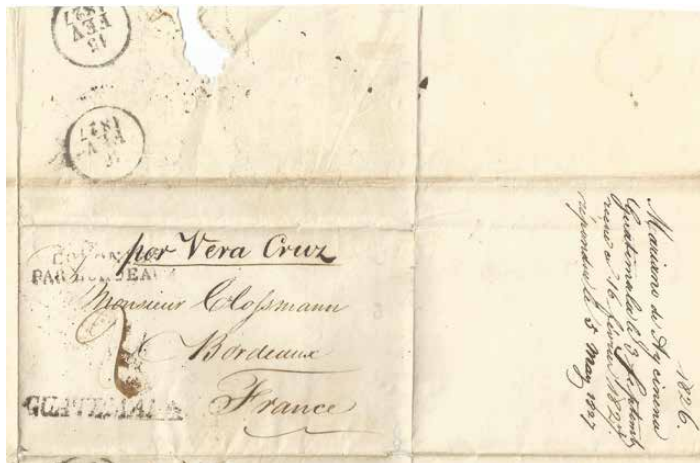 15
FEV
1827
FEV
1827
por Vera Cruz
PAR BORDEAUX
Monsieur Clossmann
Bordeaux
2
France
GUATEMALA
1826.
Mariano de Aycinena
Guatemala le 3 Septemb
recue le 16 février 1827.
répondu le 5 May 1827